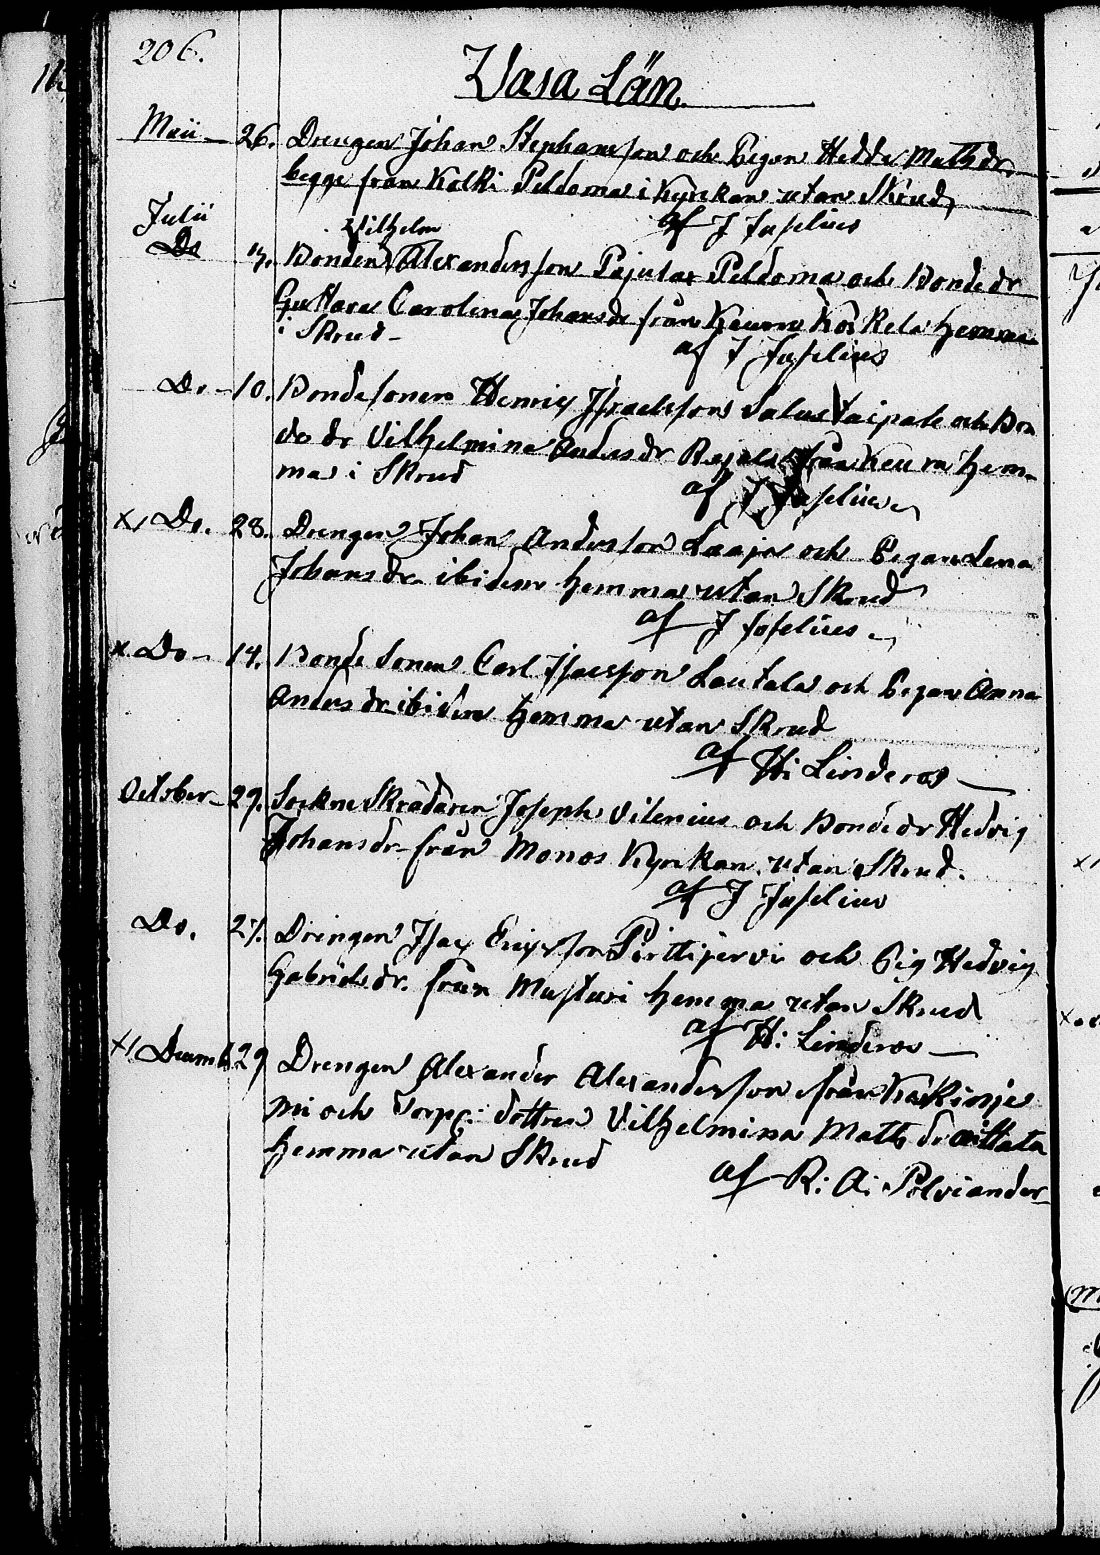 206.
Vasa Län
Maii 26. Drengen Johan Stephansson och Pigan Hedda Mathsdr
begge från Kolki Peldoma i Kyrkan utan Skrud
af J Juselius
Julii
Wilhelm
Do 7. Bonden Alexandersson Pajuta Peldoma och Bondedr
Gustava Carolina Johansdr från Keuru Kos Kela hemma
i Skrud
af J Juselius
Do 10. Bondesonen Henric Israelsson Salus Taipale och Bon
de dr Vilhelmina Andersdr från Keuru hem-
ma i Skrud
af J Juselius
x, Do. 28. Drengen Johan Andersson Laaja och Pigan Lena
Johansdr ibidem hemma utan Skrud
af J Juselius
x Do 14. Bonde Sonen Carl Isacsson Lautala och Pigan Anna
Andersdr ibidem hemma utan Skrud
af H: Linderos
October 29. Sockne Skrädaren Joseph Vilenius och Bondedr Hedvig
Johansdr från Monos Kyrkan utan Skrud.
af J Juselius
Do. Drengen Isac Ericsson Pirttijervi och Pig Hedvig
Gabrielsdr. från hemma utan Skrud
af H: Linderos
x, Decemb 29 Drengen Alexander Alexandersson från
mi och Torp: dottren Vilhelmina Mathsdr
hemma utan Skrud
af R: A: Polviander